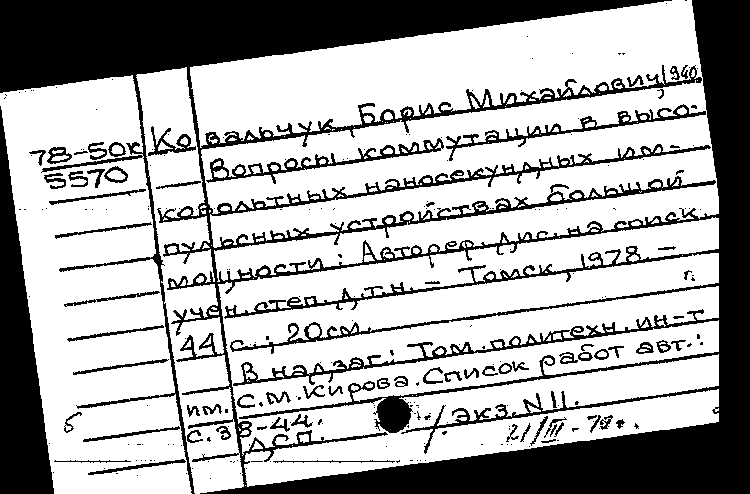 78-50к
5570
Ковальчук, Борис Михайлович, 1940
Вопросы коммутации в высо-
ковольтных наносекундных им-
пульсных устройствах большой
мощности : Автореф. дис. на соиск.
учен. степ. д.т.н. – Томск, 1978. –
44 с. ; 20 см.
В надзаг.: Том. политехн. ин-т
им. С.М. Кирова. Список работ авт.:
с. 38-44.
Экз. N 11.
ДСП.
21/III-79г.
б